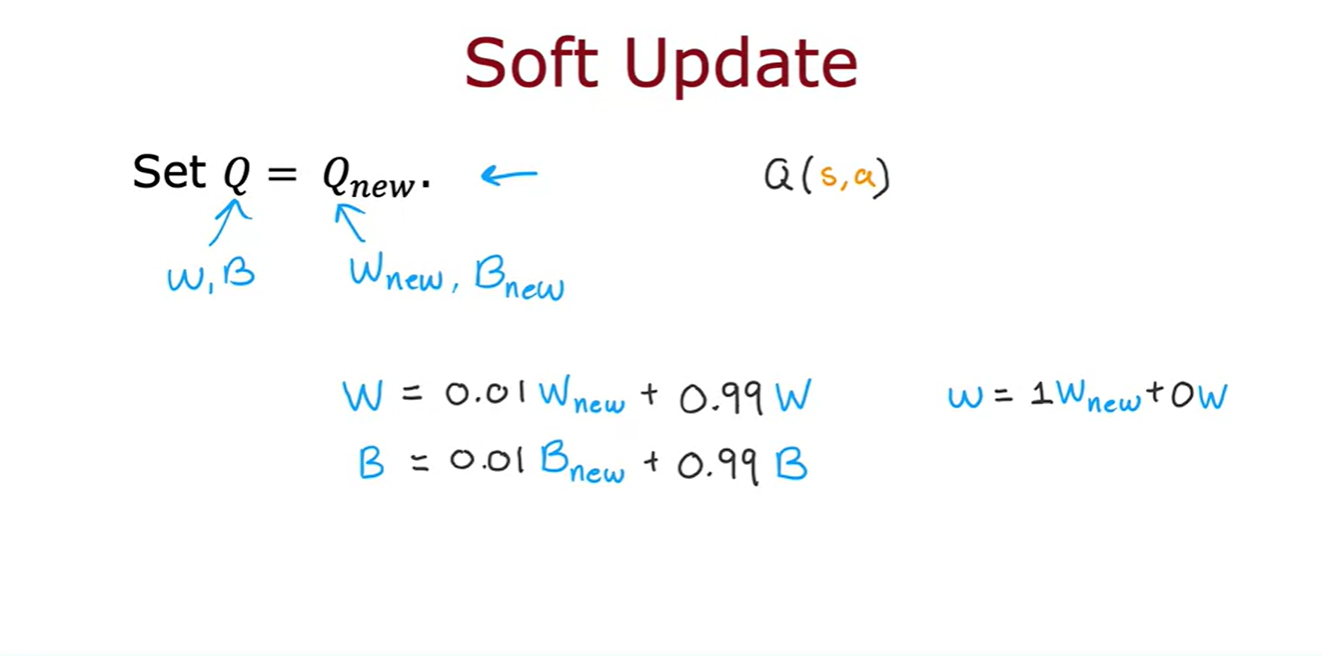 Soft Update
Set Q = Q_new. ← Q(s,a)
W,B W_new, B_new
W = 0.01 W_new + 0.99 W
w = 1W_new + 0W
B = 0.01 B_new + 0.99 B